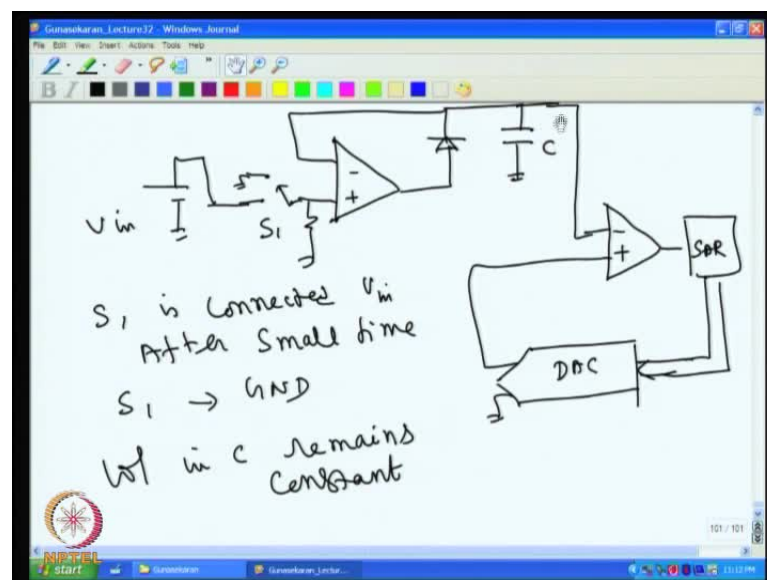 Gunasekaran_Lecture32 - Windows Journal
File Edit View Insert Actions Tools Help
B I
C
V in
S1
-
+
-
+
SAR
DAC
S1 is connected Vin
After small time
S1 → GND
Vol in C remains
constant
101 / 101
NPTEL
start
Gunasekaran
Gunasekaran_Lectur...
11:12 PM